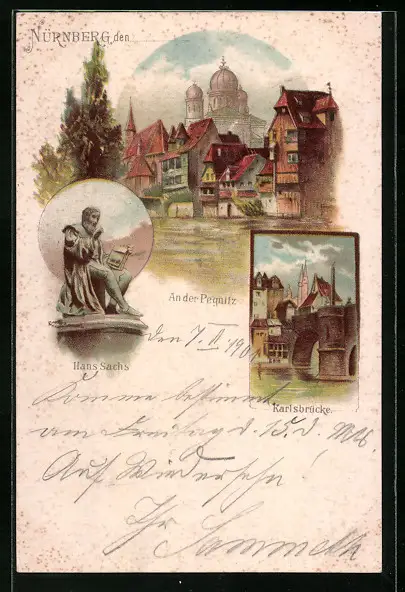 NÜRNBERG, den
An der Pegnitz
den 7. II 1901
Hans Sachs
Karlsbrücke.
Komme bestimmt
am Freitag d. 15. d. Mts.
Auf Wiedersehn!
Ihr